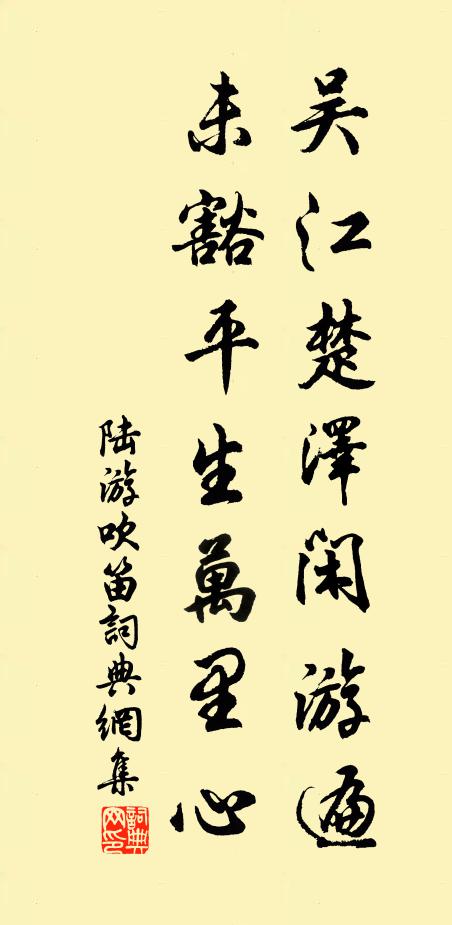 吴江楚澤閑游遍
未豁平生萬里心
陸游吹笛詞典網集
詞典網印